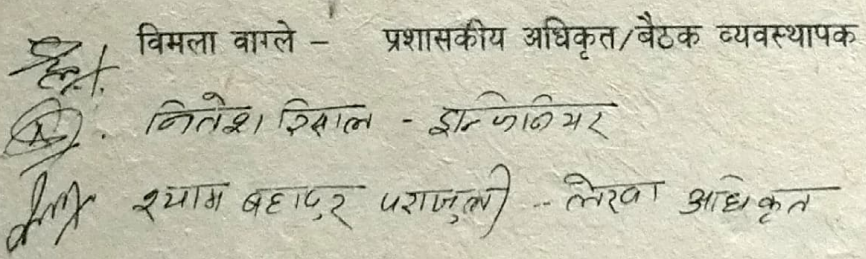 विमला वाग्ले - प्रशासकीय अधिकृत/बैठक व्यवस्थापक
नितेश रिसाल - इन्जिनियर
श्याम बहादुर पराजुली - लेखा अधिकृत